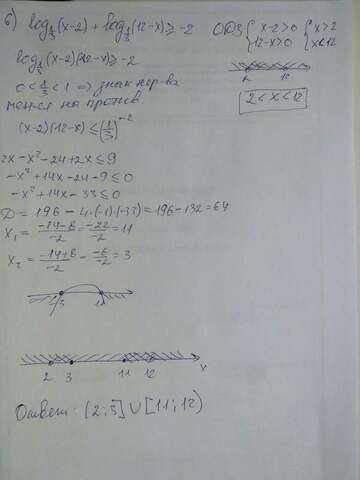 6) log_{1/3}(x-2) + log_{1/3}(12-x) ≥ -2
ОДЗ { x-2>0 { x>2
12-x>0 x<12
log_{1/3}(x-2)(12-x) ≥ -2
0 < 1/3 < 1 => знак нер-ва
2 12
меняем на против.
2 < x < 12
(x-2)(12-x) ≤ (1/3)^{-2}
2x - x² - 24 + 2x ≤ 9
-x² + 14x - 24 - 9 ≤ 0
-x² + 14x - 33 ≤ 0
D = 196 - 4·(-1)·(-33) = 196 - 132 = 64
x₁ = (-14-8)/-2 = -22/-2 = 11
x₂ = (-14+8)/-2 = -6/-2 = 3
3 11
2 3 11 12 x
Ответ: (2;3] ∪ [11;12)